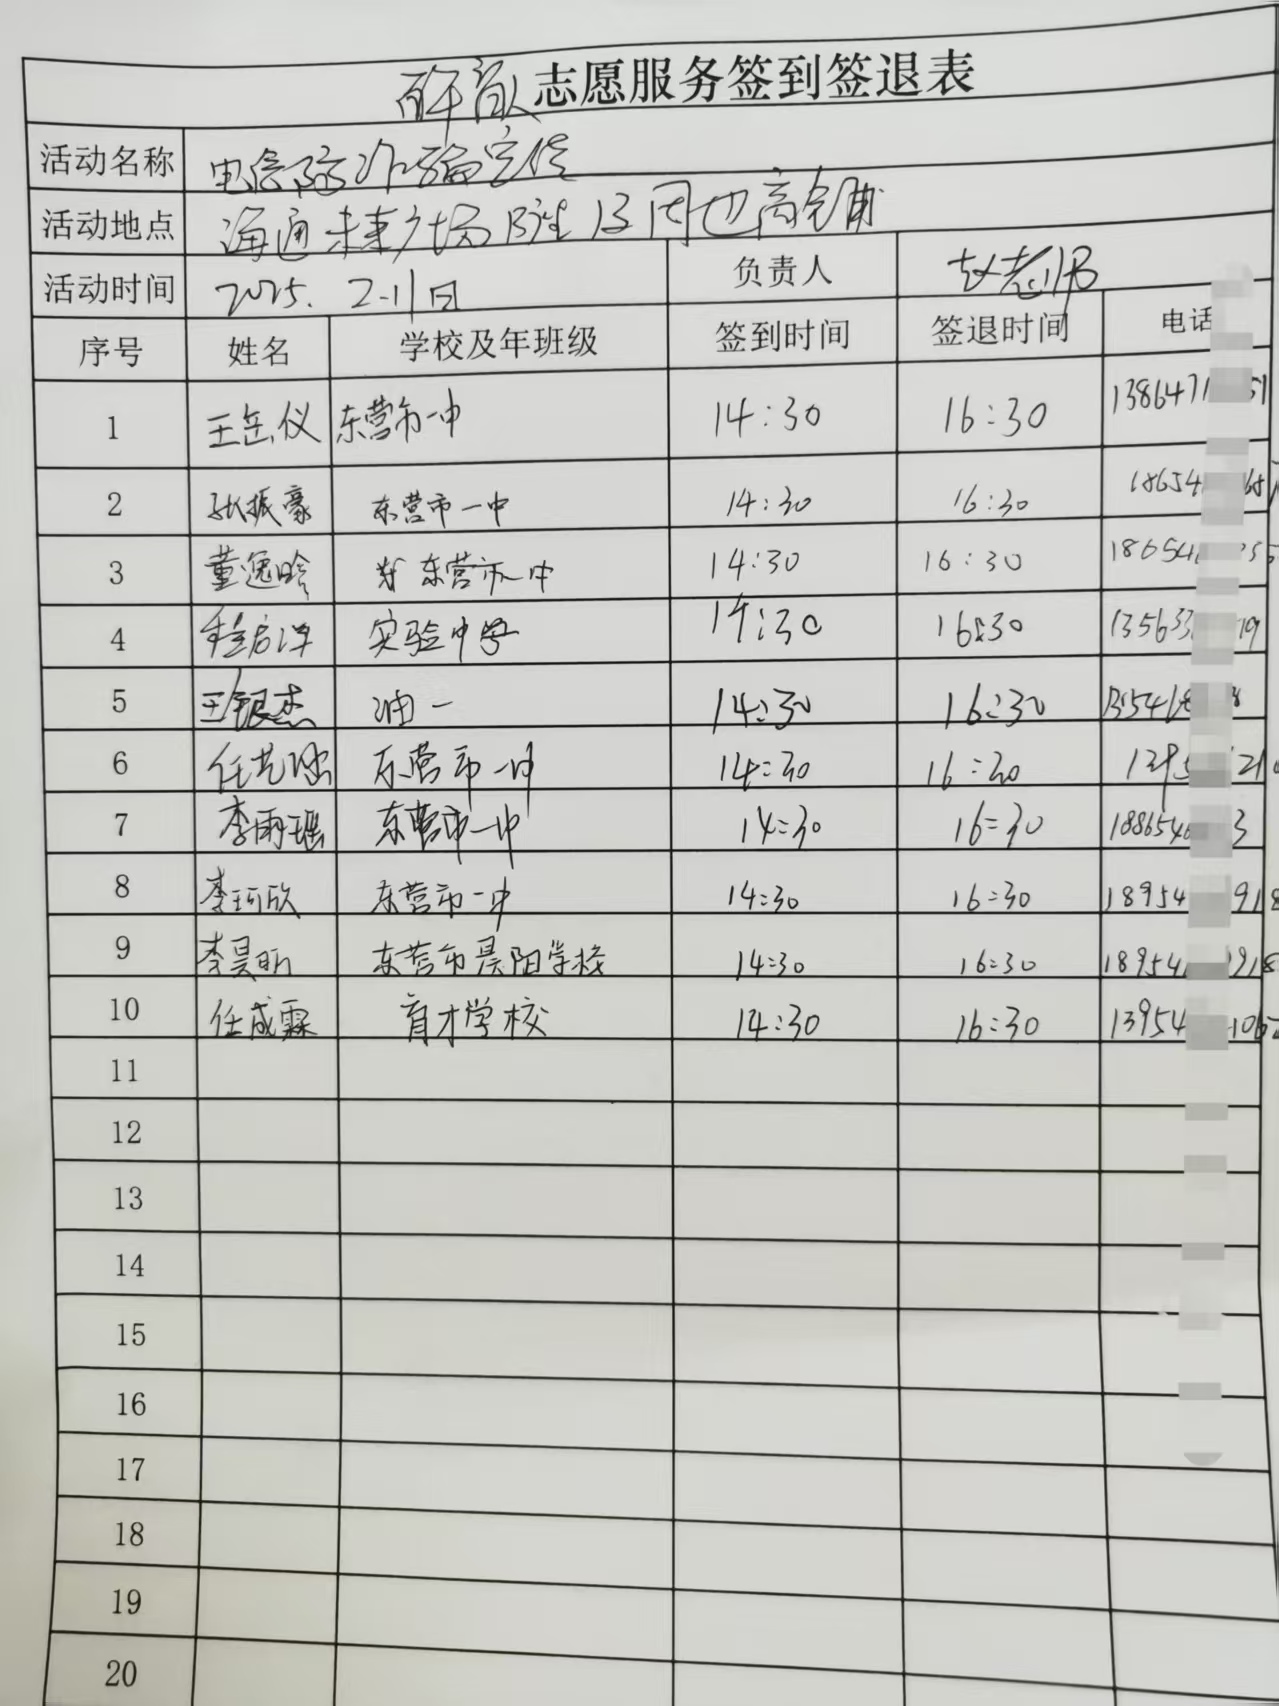 志愿服务签到签退表
活动名称 电信防诈骗宣传
活动地点 海通未来广场 及周边商铺
活动时间 2025. 2.11日 负责人 赵老师
序号 姓名 学校及年班级 签到时间 签退时间 电话
1 王岳仪 东营市一中 14:30 16:30 1386471 51
2 张振豪 东营市一中 14:30 16:30 18654
3 董逸晗 东营市一中 14:30 16:30 18654
4 程启洋 实验中学 14:30 16:30 135633 19
5 王银杰 油一 14:30 16:30
6 任艺 东营市一中 14:30 16:30 1395
7 李雨瑶 东营市一中 14:30 16:30 1886546 3
8 李珂欣 东营市一中 14:30 16:30 18954 918
9 李昊昕 东营市晨阳学校 14:30 16:30 18954 1918
10 任成霖 育才学校 14:30 16:30 13954 106
11
12
13
14
15
16
17
18
19
20